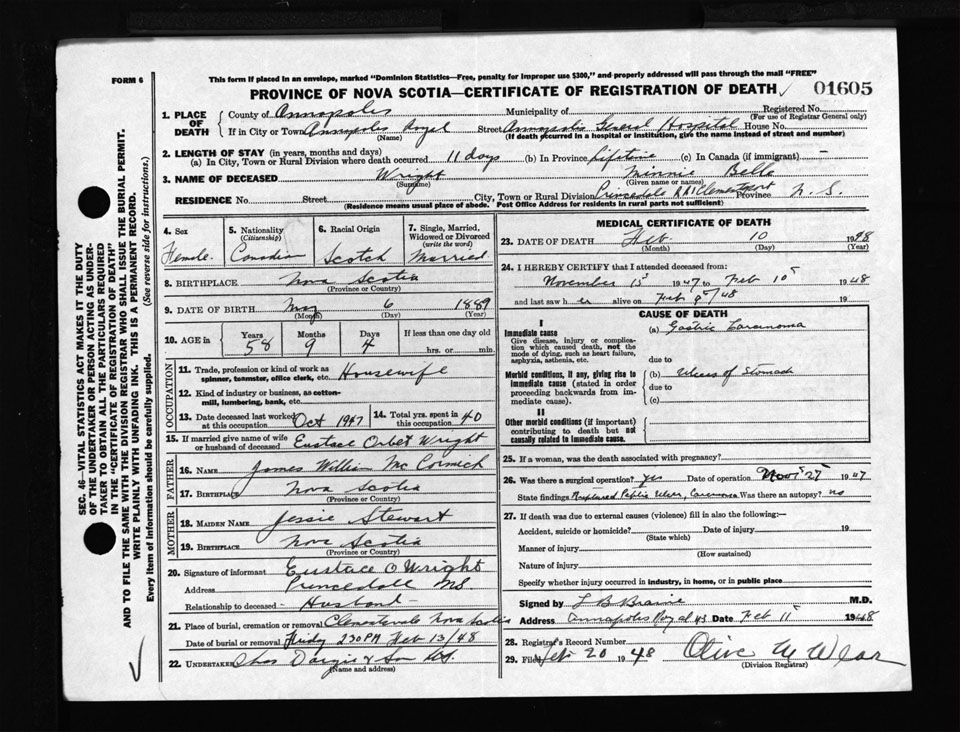 FORM 6
This form if placed in an envelope, marked "Dominion Statistics—Free, penalty for improper use $300," and properly addressed will pass through the mail "FREE"
PROVINCE OF NOVA SCOTIA—CERTIFICATE OF REGISTRATION OF DEATH 01605
1. PLACE OF DEATH
County of Annapolis Municipality of Registered No.
(For use of Registrar General only)
If in City or Town Annapolis Royal Street Annapolis General Hospital House No.
(Name) (If death occurred in a hospital or institution, give the name instead of street and number)
2. LENGTH OF STAY (in years, months and days)
(a) In City, Town or Rural Division where death occurred 11 days (b) In Province Lifetime (c) In Canada (if immigrant) —
3. NAME OF DECEASED Wright Minnie Belle
(Surname) (Given name or names)
RESIDENCE No. Street City, Town or Rural Division Princedale RR1 Clementsport Province N. S.
(Residence means usual place of abode. Post Office Address for residents in rural parts not sufficient)
4. Sex
Female
5. Nationality
(Citizenship)
Canadian
6. Racial Origin
Scotch
7. Single, Married, Widowed or Divorced
(write the word)
Married
8. BIRTHPLACE Nova Scotia
(Province or Country)
9. DATE OF BIRTH May 6 1889
(Month) (Day) (Year)
10. AGE in Years Months Days If less than one day old
58 9 4 hrs. or min.
OCCUPATION
11. Trade, profession or kind of work as spinner, teamster, office clerk, etc. Housewife
12. Kind of industry or business, as cotton-mill, lumbering, bank, etc.
13. Date deceased last worked at this occupation Oct 1947
14. Total yrs. spent in this occupation 40
15. If married give name of wife or husband of deceased Eustace Orbet Wright
FATHER
16. NAME James William McCormick
17. BIRTHPLACE Nova Scotia
(Province or Country)
MOTHER
18. MAIDEN NAME Jessie Stewart
19. BIRTHPLACE Nova Scotia
(Province or Country)
20. Signature of informant Eustace O Wright
Address Princedale NS
Relationship to deceased Husband
21. Place of burial, cremation or removal Clementsvale Nova Scotia
Date of burial or removal Friday 2 30 PM Feb 13/48
22. UNDERTAKER Chas Dargie & Son
(Name and address)
MEDICAL CERTIFICATE OF DEATH
23. DATE OF DEATH Feb. 10 1948
(Month) (Day) (Year)
24. I HEREBY CERTIFY that I attended deceased from:
November 1947 to Feb 10 1948
and last saw her alive on Feb 8/48 19
CAUSE OF DEATH
I
Immediate cause
Give disease, injury or complication which caused death, not the mode of dying, such as heart failure, asphyxia, asthenia, etc.
(a) Gastric Carcinoma
due to
Morbid conditions, if any, giving rise to immediate cause (stated in order proceeding backwards from immediate cause).
(b) Ulcers of Stomach
due to
(c)
II
Other morbid conditions (if important) contributing to death but not causally related to immediate cause.
25. If a woman, was the death associated with pregnancy?
26. Was there a surgical operation? yes Date of operation Nov 27 1947
State findings Ruptured Peptic Ulcer, Carcinoma Was there an autopsy? no
27. If death was due to external causes (violence) fill in also the following:—
Accident, suicide or homicide? Date of injury 19
(State which)
Manner of injury
(How sustained)
Nature of injury
Specify whether injury occurred in industry, in home, or in public place
Signed by L B Braine M.D.
Address Annapolis Royal NS Date Feb 11 1948
28. Registrar's Record Number
29. Filed Feb 20 1948 Olive M Wear
(Division Registrar)
SEC. 46—VITAL STATISTICS ACT MAKES IT THE DUTY
OF THE UNDERTAKER OR PERSON ACTING AS UNDER-
TAKER TO OBTAIN ALL THE PARTICULARS REQUIRED
IN THE "CERTIFICATE OF REGISTRATION OF DEATH"
AND TO FILE THE SAME WITH THE DIVISION REGISTRAR WHO SHALL ISSUE THE BURIAL PERMIT.
WRITE PLAINLY WITH UNFADING INK. THIS IS A PERMANENT RECORD.
Every item of information should be carefully supplied. (See reverse side for instructions.)